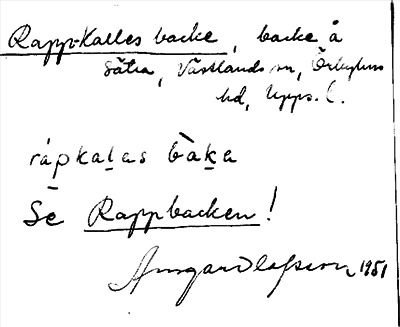 Rapp-Kalles backe, backe å
Sätra, Västlands sn, Örbyhus
hd, Upps. l.
rápkaḻas bàḵa
Se Rappbacken!
Ingvar Olofsson 1951